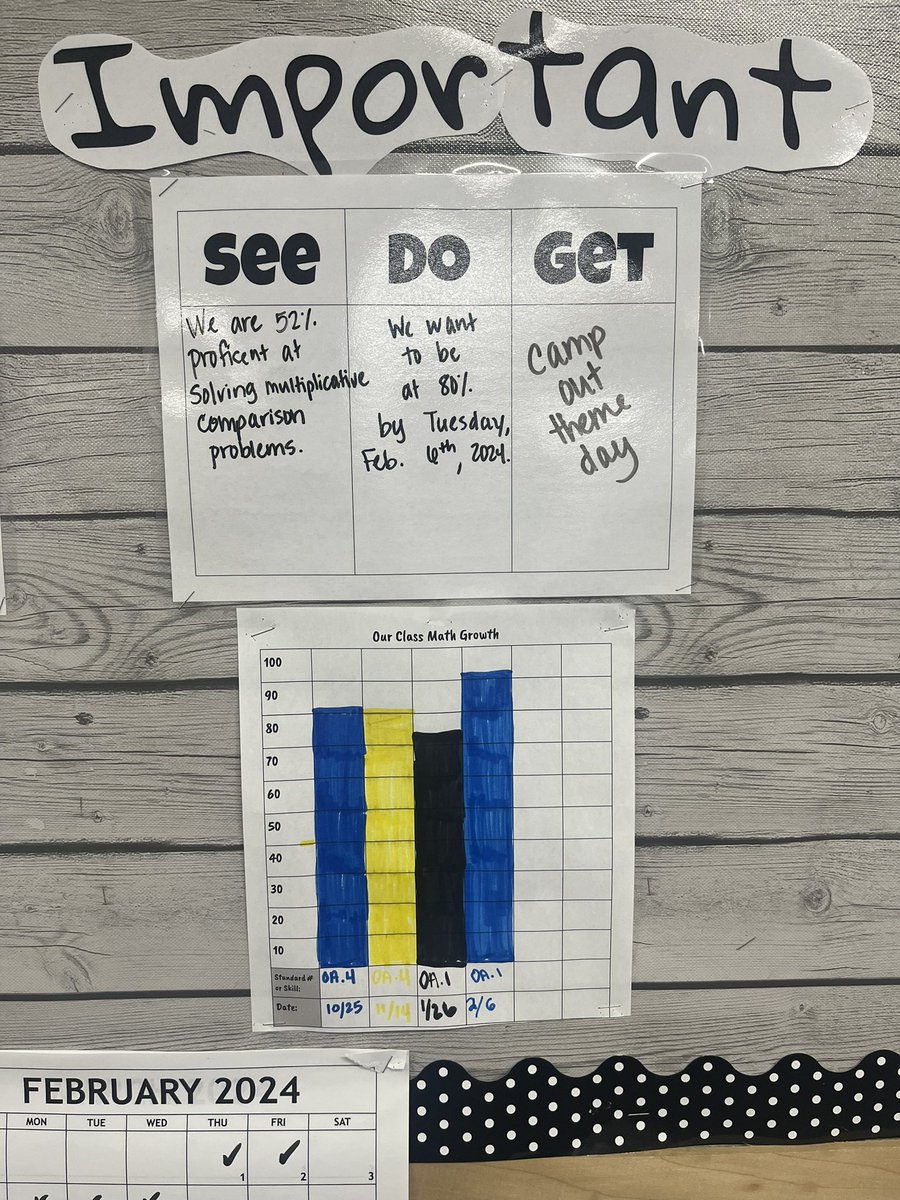 Important
See Do Get
We are 52%
proficent at
Solving multiplicative
comparison
problems.
We want
to be
at 80%
by Tuesday,
Feb. 6th, 2024.
Camp
out
theme
day
Our Class Math Growth
100
90
80
70
60
50
40
30
20
10
Standard # or Skill: OA.4 OA.4 OA.1 OA.1
Date: 10/25 11/14 1/26 2/6
FEBRUARY 2024
MON TUE WED THU FRI SAT
1 2 3